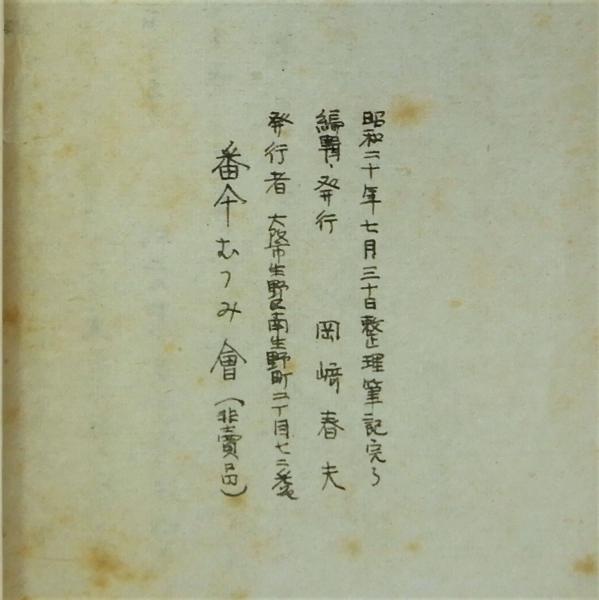 昭和二十年七月三十日整理筆記完了
編輯・発行 岡﨑春夫
発行者 大阪市生野区南生野町二丁目七二番
番傘むつみ會（非賣品）